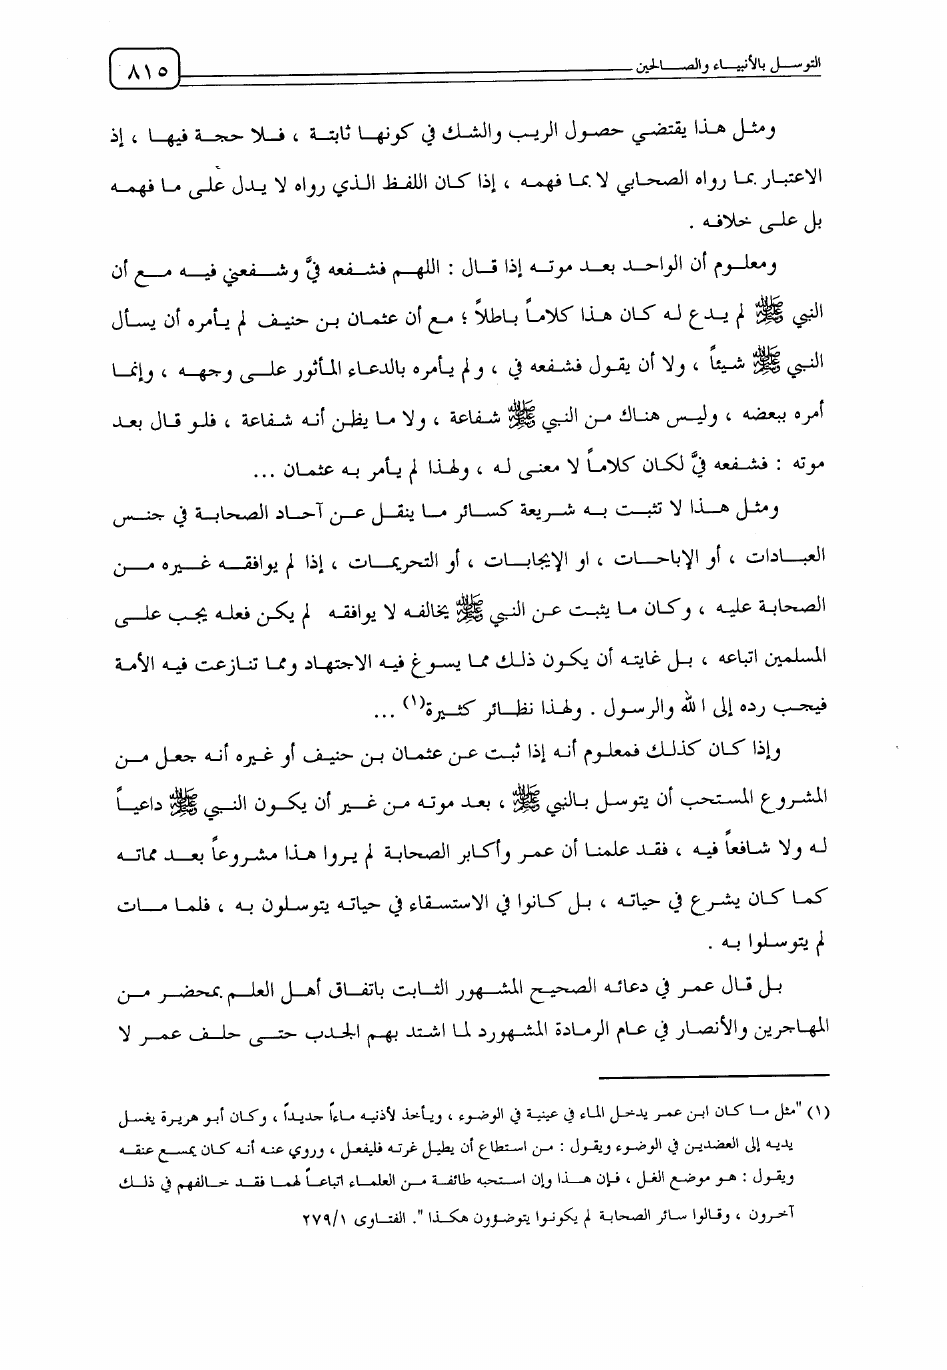 التوسل بالأنبياء والصالحين
٨١٥
ومثل هذا يقتضي حصول الريب والشك في كونها ثابتة ، فلا حجة فيها ، إذ
الاعتبار بما رواه الصحابي لا بما فهمه ، إذا كان اللفظ الذي رواه لا يدل على ما فهمه
بل على خلافه .
ومعلوم أن الواحد بعد موته إذا قال : اللهم فشفعه فيَّ وشفعني فيه مع أن
النبي ﷺ لم يدع له كان هذا كلاماً باطلاً ؛ مع أن عثمان بن حنيف لم يأمره أن يسأل
النبي ﷺ شيئاً ، ولا أن يقول فشفعه في ، ولم يأمره بالدعاء المأثور على وجهه ، وإنما
أمره ببعضه ، وليس هناك من النبي ﷺ شفاعة ، ولا ما يظن أنه شفاعة ، فلو قال بعد
موته : فشفعه فيَّ لكان كلاماً لا معنى له ، ولهذا لم يأمر به عثمان ...
ومثل هذا لا تثبت به شريعة كسائر ما ينقل عن آحاد الصحابة في جنس
العبادات ، أو الإباحات ، او الإيجابات ، أو التحريمات ، إذا لم يوافقه غيره من
الصحابة عليه ، وكان ما يثبت عن النبي ﷺ يخالفه لا يوافقه لم يكن فعله يجب على
المسلمين اتباعه ، بل غايته أن يكون ذلك مما يسوغ فيه الاجتهاد ومما تنازعت فيه الأمة
فيجب رده إلى الله والرسول . ولهذا نظائر كثيرة(١) ...
وإذا كان كذلك فمعلوم أنه إذا ثبت عن عثمان بن حنيف أو غيره أنه جعل من
المشروع المستحب أن يتوسل بالنبي ﷺ ، بعد موته من غير أن يكون النبي ﷺ داعياً
له ولا شافعاً فيه ، فقد علمنا أن عمر وأكابر الصحابة لم يروا هذا مشروعاً بعد مماته
كما كان يشرع في حياته ، بل كانوا في الاستسقاء في حياته يتوسلون به ، فلما مات
لم يتوسلوا به .
بل قال عمر في دعائه الصحيح المشهور الثابت باتفاق أهل العلم بمحضر من
المهاجرين والأنصار في عام الرمادة المشهورد لما اشتد بهم الجدب حتى حلف عمر لا
(١) "مثل ما كان ابن عمر يدخل الماء في عينية في الوضوء ، ويأخذ لأذنيه ماءاً جديداً ، وكان أبو هريرة يغسل
يديه إلى العضدين في الوضوء ويقول : من استطاع أن يطيل غرته فليفعل ، وروي عنه أنه كان يمسح عنقه
ويقول : هو موضع الغل ، فإن هذا وإن استحبه طائفة من العلماء اتباعاً لهما فقد خالفهم في ذلك
آخرون ، وقالوا سائر الصحابة لم يكونوا يتوضؤون هكذا ". الفتاوى ٢٧٩/١